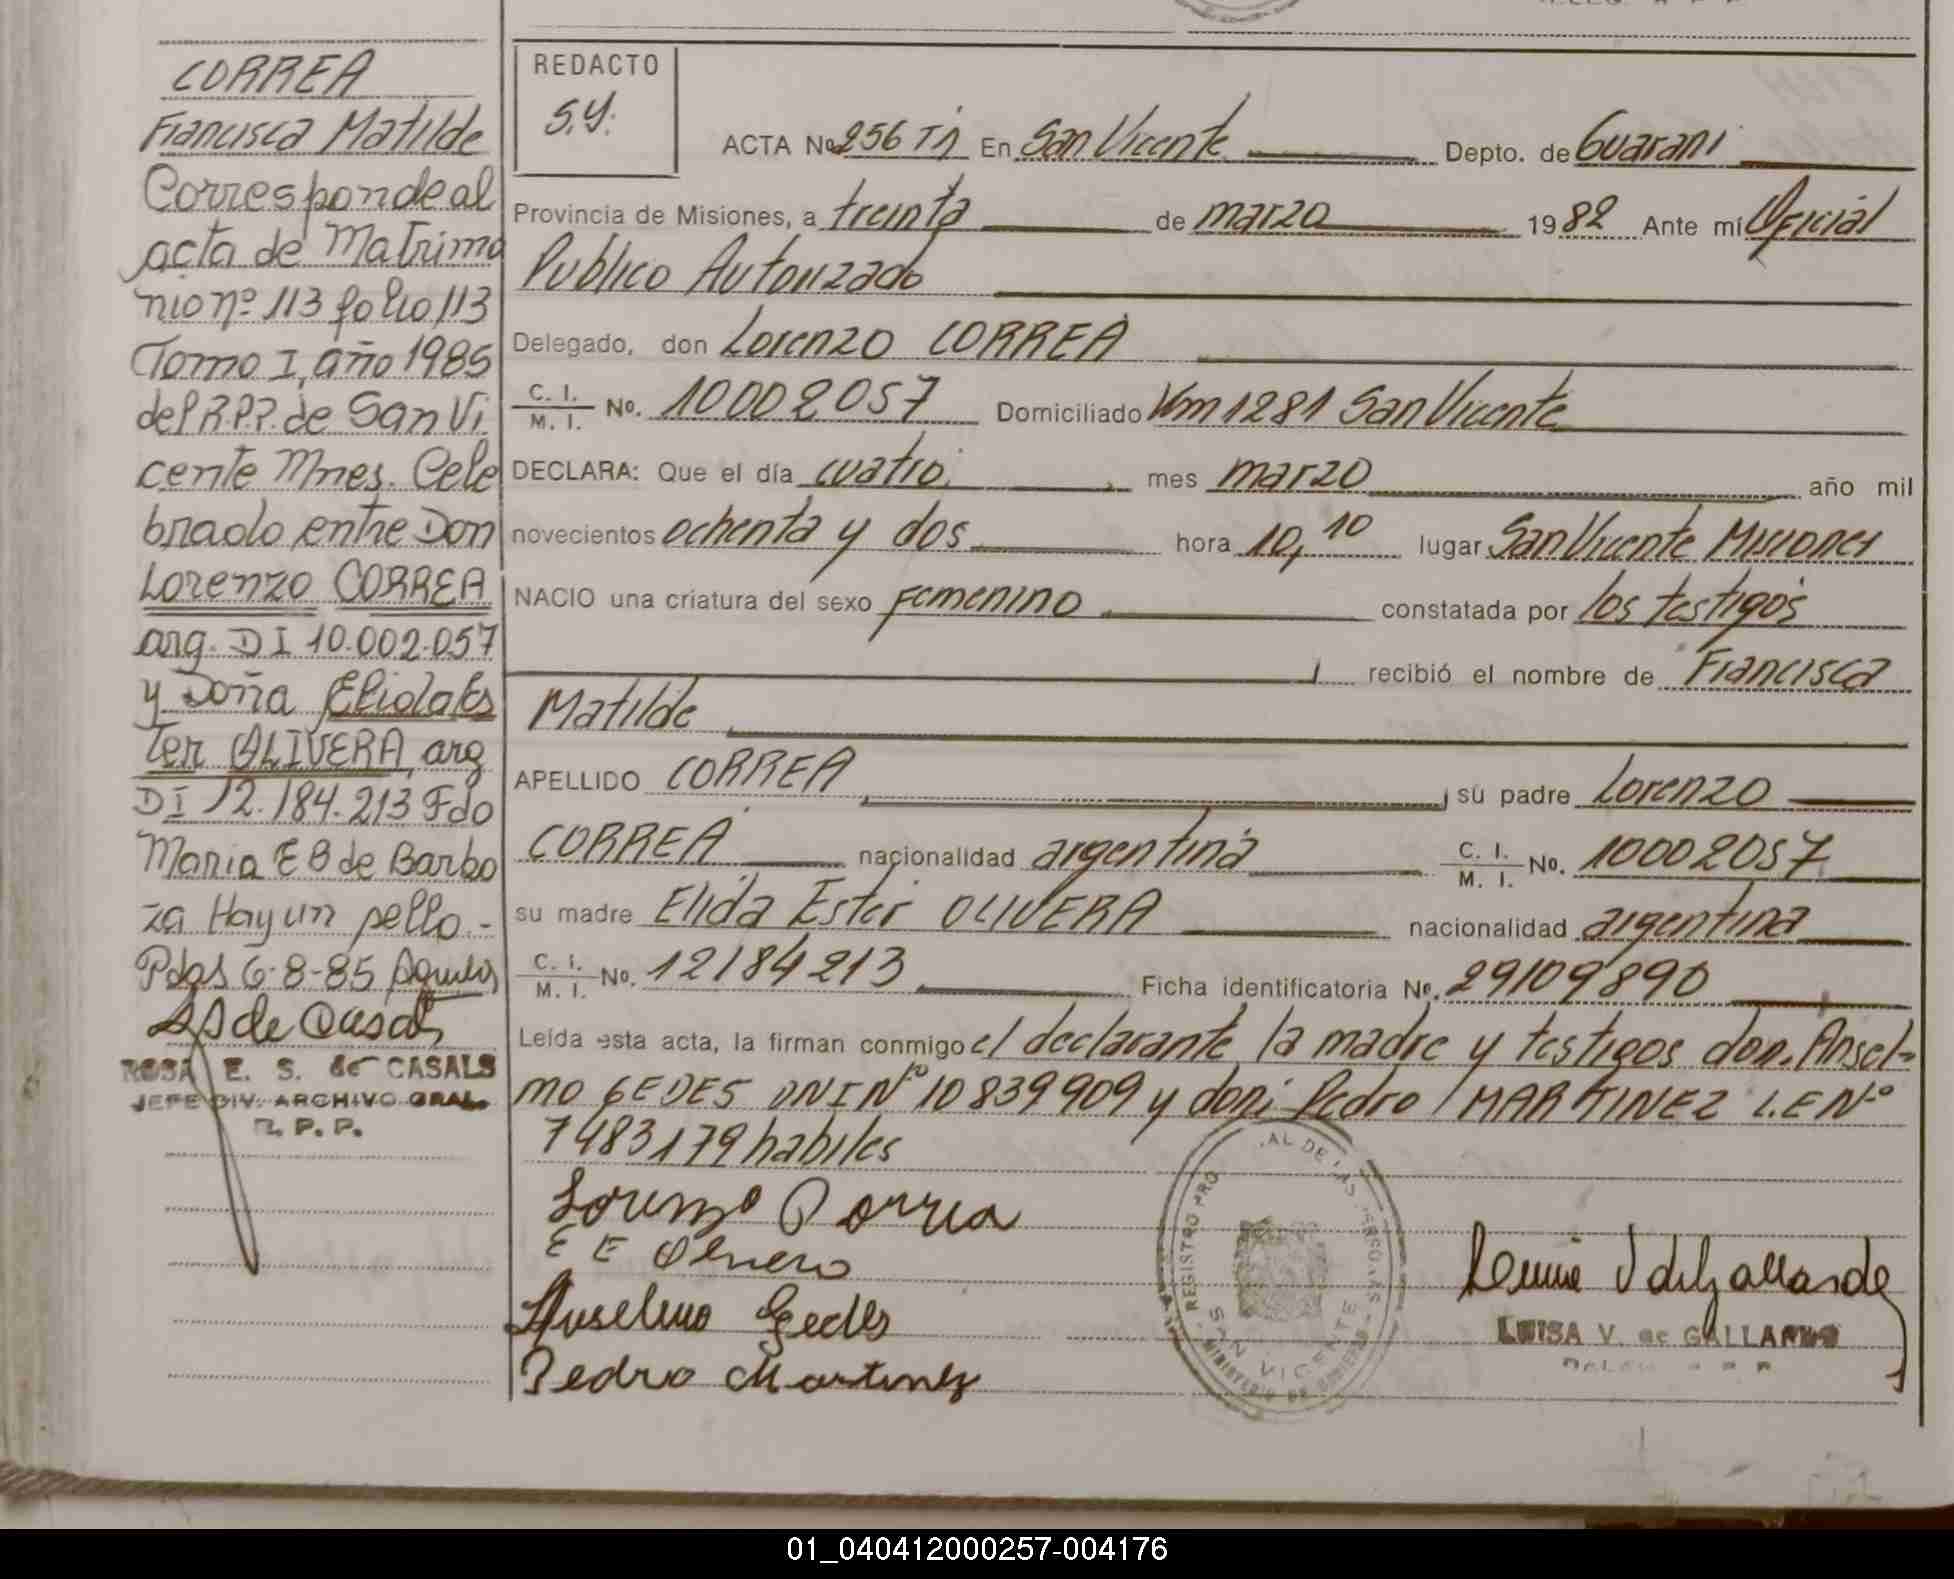 CORREA
Francisca Matilde
Corresponde al
acta de Matrimo
nio nº 113 folio 113
Tomo I, año 1985
del R.P.P. de San Vi
cente Mnes. Cele
brado entre Don
Lorenzo CORREA
arg. DI 10.002.057
y Doña Elida Es
ter OLIVERA, arg
DI 12.184.213 Fdo
Maria E B de Barbo
za Hay un sello.-
Pdas 6-8-85
ROSA E. S. de CASALS
JEFE DIV. ARCHIVO GRAL.
R. P. P.
REDACTO
S.Y.
ACTA Nº 256 En San Vicente Depto. de Guarani
Provincia de Misiones, a treinta de marzo 1982 Ante mí Oficial
Publico Autorizado
Delegado, don Lorenzo CORREA
C. I. / M. I. Nº. 10002057 Domiciliado Km 1281 San Vicente
DECLARA: Que el día cuatro mes marzo año mil
novecientos ochenta y dos hora 10,10 lugar San Vicente Misiones
NACIO una criatura del sexo femenino constatada por los testigos
recibió el nombre de Francisca
Matilde
APELLIDO CORREA, su padre Lorenzo
CORREA nacionalidad argentina C. I. / M. I. Nº. 10002057
su madre Elida Ester OLIVERA nacionalidad argentina
C. I. / M. I. Nº. 12184213 Ficha identificatoria Nº. 29109890
Leída esta acta, la firman conmigo el declarante, la madre y testigos don Ansel-
mo GEDES DNI Nº 10839909 y don Pedro MARTINEZ L.E Nº
7483179 habiles
Lorenzo Correa
E E Olivero
Anselmo Gedes
Pedro Martinez
REGISTRO PRO AL DE LAS PERSONAS
SAN VICENTE
MINISTERIO DE GOBIERNO
LUISA V. de GALLARDO
01_040412000257-004176